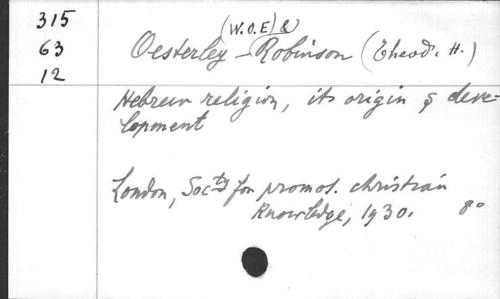 315
63
12
(W.O.E) &
Oesterley - Robinson (Theod. H.)
Hebrew religion, its origin & deve-
lopment
London, Socty for promot. christian
Knowledge, 1930. 8o